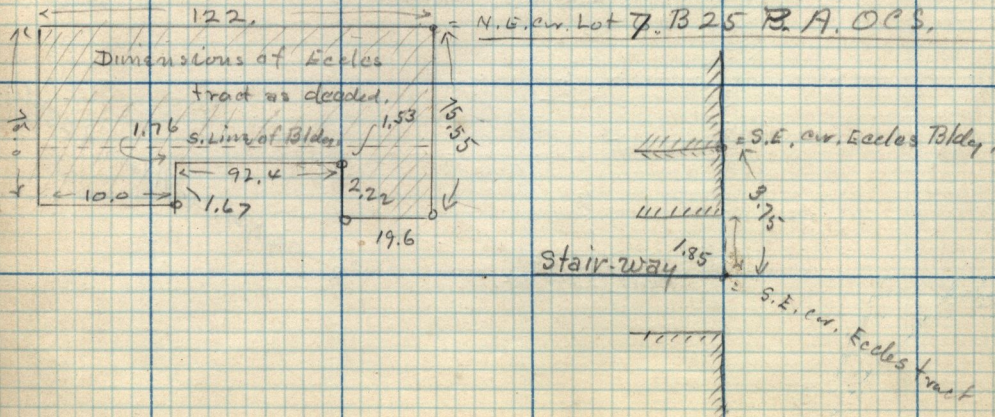 122.
= N.E. cor. Lot 7. B 25 P. A. OCS.
Dimensions of Eccles
tract as deeded.
75.55
1.76
S. Line of Bldg.
1.53
92.4
10.0
1.67
2.22
19.6
= S.E. cor. Eccles Bldg.
3.75
Stair-way
1.85
= S.E. cor. Eccles tract